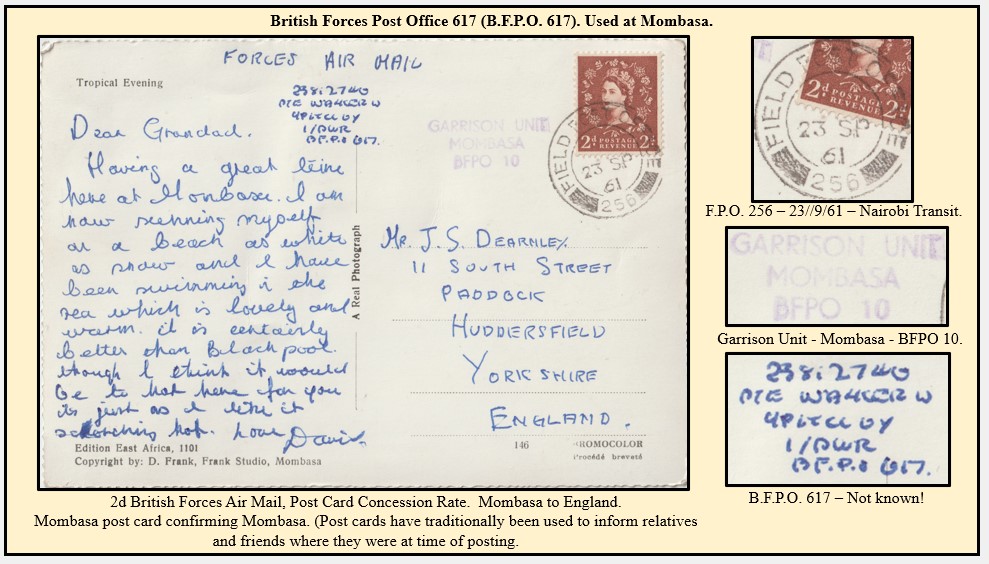 British Forces Post Office 617 (B.F.P.O. 617). Used at Mombasa.
FORCES AIR MAIL
Tropical Evening
WALKER W
1/DWR
B.F.P.O 617.
Dear Grandad.
Having a great time
here at Mombasa. I am
now sunning myself
on a beach as white
as snow and I have
been swimming in the
sea which is lovely and
warm. it is certainly
better than Blackpool.
though I think it would
be to hot here for you
its just as I like it
scorching hot. Love
David.
Edition East Africa, 1101
Copyright by: D. Frank, Frank Studio, Mombasa
A Real Photograph
GARRISON UNIT
MOMBASA
BFPO 10
2d POSTAGE REVENUE 2d
FIELD
23 SP
61
256
Mr. J. S. DEARNLEY
11 SOUTH STREET
PADDOCK
HUDDERSFIELD
YORKSHIRE
ENGLAND.
146
ROMOCOLOR
Procédé breveté
2d POSTAGE REVENUE 2d
FIELD
23 SP
61
256
F.P.O. 256 – 23//9/61 – Nairobi Transit.
GARRISON UNIT
MOMBASA
BFPO 10
Garrison Unit - Mombasa - BFPO 10.
WALKER W
1/DWR
B.F.P.O 617.
B.F.P.O. 617 – Not known!
2d British Forces Air Mail, Post Card Concession Rate. Mombasa to England.
Mombasa post card confirming Mombasa. (Post cards have traditionally been used to inform relatives
and friends where they were at time of posting.